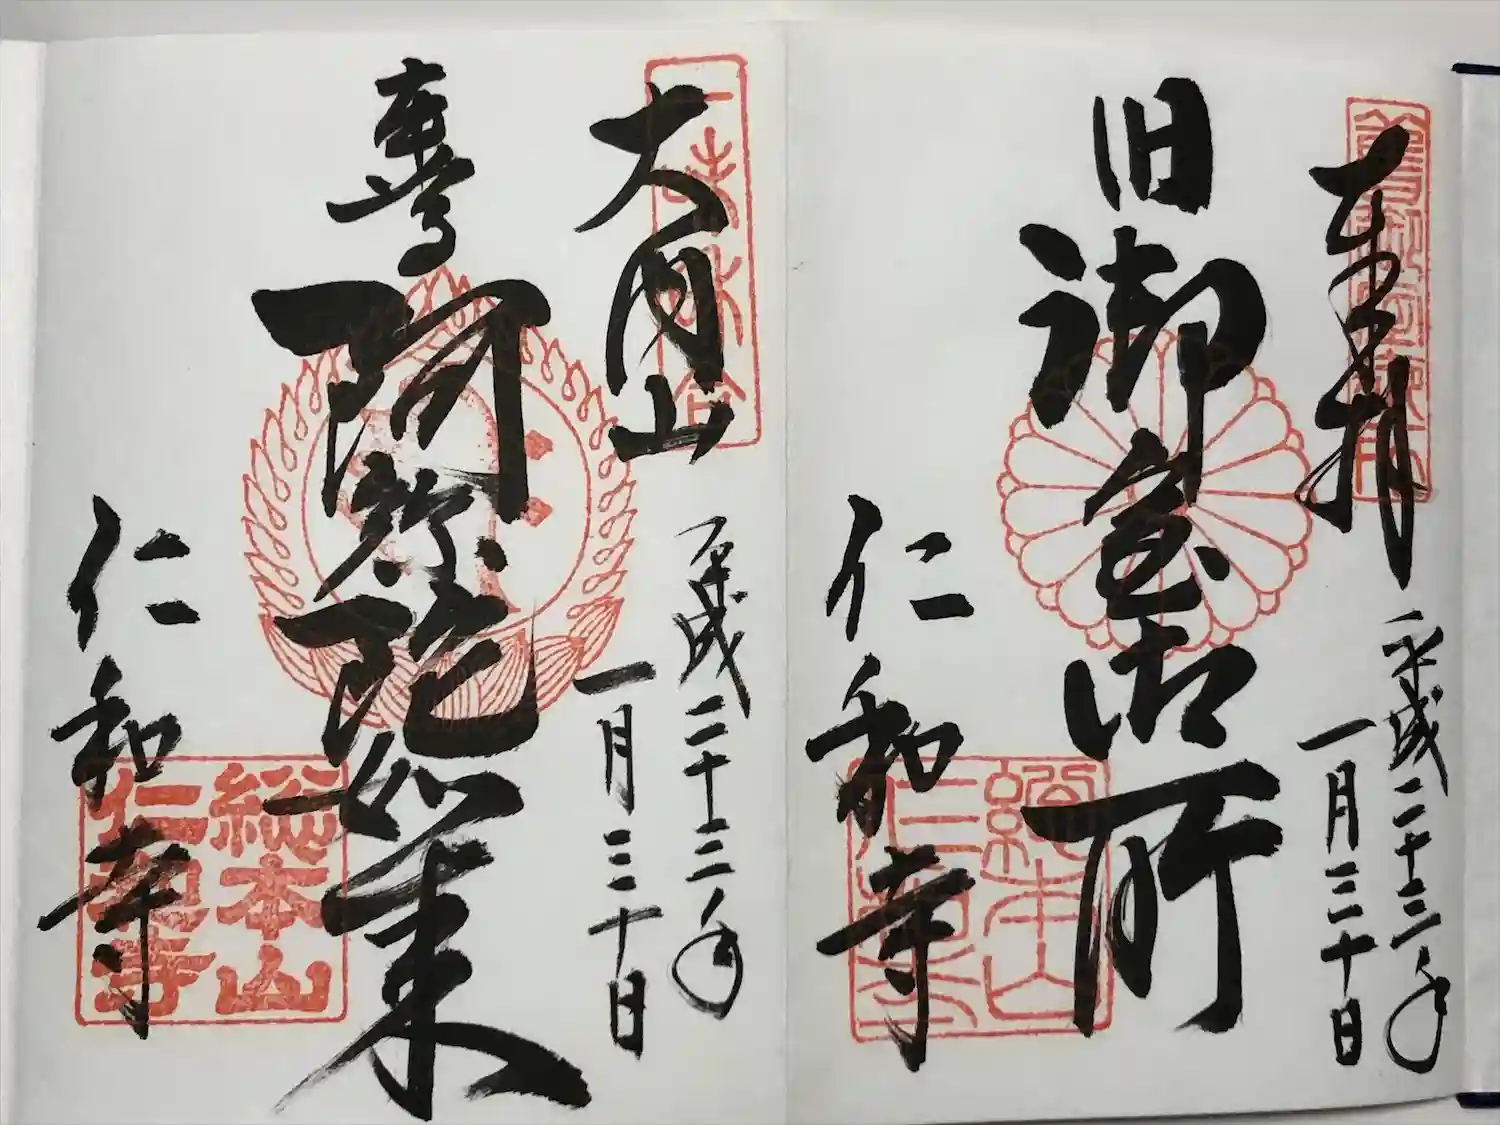 奉拝
平成二十三年
一月三十日
旧御室御所
仁和寺
総本山
仁和寺
大内山
平成二十三年
一月三十日
阿弥陀如来
仁和寺
総本山
仁和寺